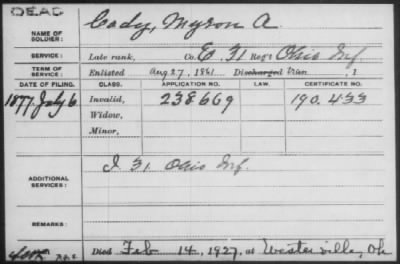 DEAD
NAME OF SOLDIER: Cady, Myron A.
SERVICE: Late rank, Co. E. 31 Reg't Ohio Inf
TERM OF SERVICE: Enlisted Aug 27, 1861 Discharged tran , 1
DATE OF FILING. CLASS. APPLICATION NO. LAW. CERTIFICATE NO.
1877 July 6 Invalid, 238669 190.433
Widow,
Minor,
ADDITIONAL SERVICES: I 31 Ohio Inf.
REMARKS:
Died Feb 14, 1927, at Westerville, Oh